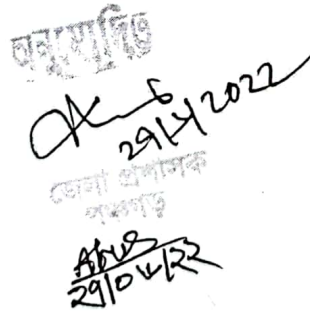 অনুমোদিত
29/4/2022
জেলা প্রশাসক
পঞ্চগড়
29/04/22